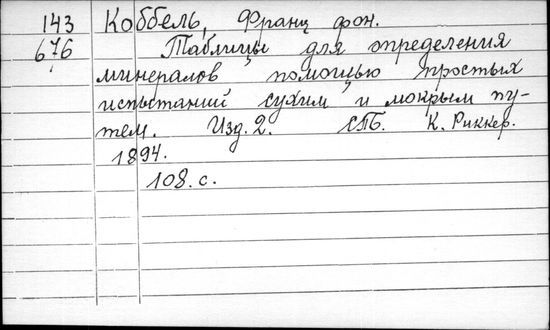 143 Коббель, Франц фон.
676 Таблицы для определения
минералов помощью простых
испытаний сухим и мокрым пу-
тем. Изд. 2. СПБ. К. Риккер.
1894.
108. с.